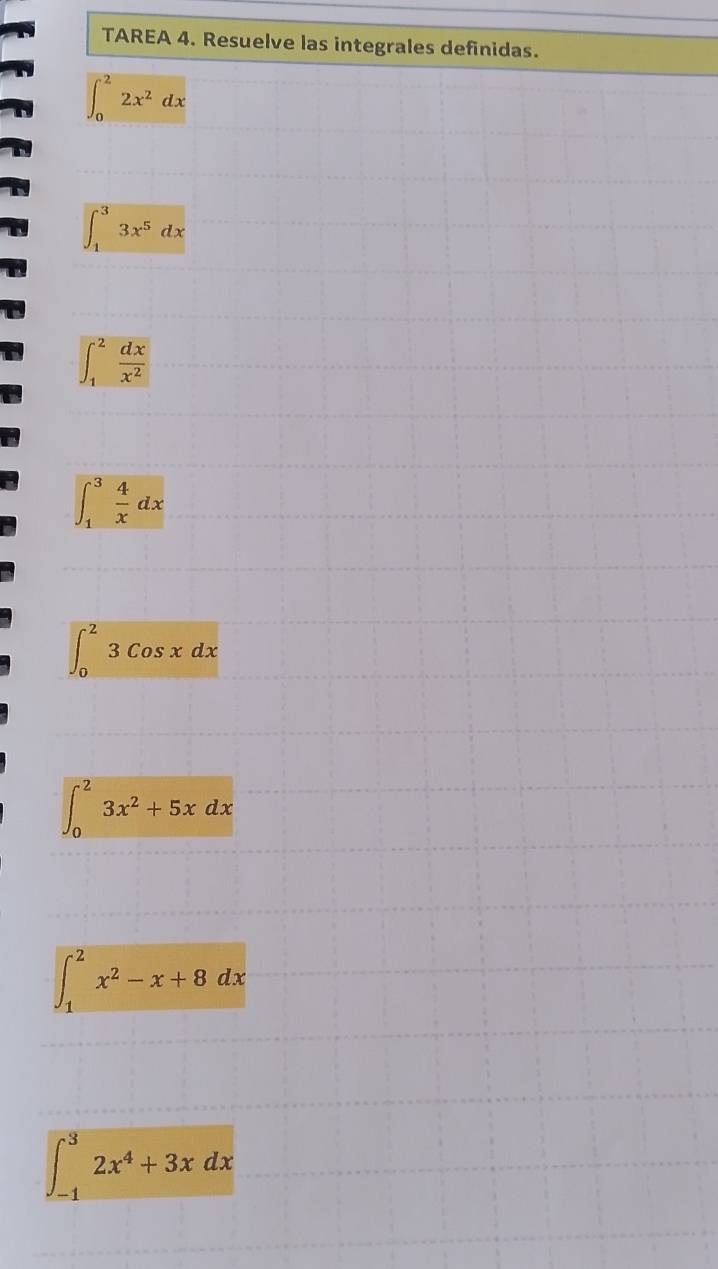 TAREA 4. Resuelve las integrales definidas.
∫₀² 2x² dx
∫₁³ 3x⁵ dx
∫₁² dx/x²
∫₁³ 4/x dx
∫₀² 3 Cos x dx
∫₀² 3x² + 5x dx
∫₁² x² − x + 8 dx
∫₋₁³ 2x⁴ + 3x dx